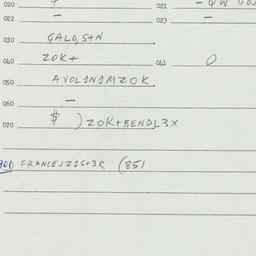 020
021
022 –
023 –
030 GALO,S+N
040 ZOK+
041 O
050 AVOL1N1MZOK
060 –
070 $ ) ZOK+BENDL3X
900 FRANCEJZ1S+3R (851